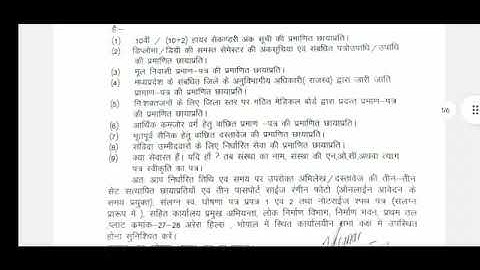 है:-
(1) 10वीं / (10+2) हायर सेकण्डरी अंक सूची की प्रमाणित छायाप्रति।
(2) डिप्लोमा/डिग्री की समस्त सेमेस्टर की अंकसूचिया एवं संबधित पत्रोउपाधि/उपाधि
की प्रमाणित छायाप्रति।
(3) मूल निवासी प्रमाण-पत्र की प्रमाणित छायाप्रति।
(4) मध्यप्रदेश के संबधित जिले के अनुविभागीय अधिकारी( राजस्व) द्वारा जारी जाति
प्रामाण-पत्र की प्रमाणित छायाप्रति।
(5) निःशक्तजनों के लिए जिला स्तर पर गठित मेडिकल बोर्ड द्वारा प्रदत्त प्रमाण-पत्र
की प्रमाणित छायाप्रति।
(6) आर्थिक कमजोर वर्ग हेतु वांछित प्रमाण -पत्र की प्रमाणित छायाप्रति।
(7) भूतपूर्व सैनिक हेतु वांछित दस्तावेज की प्रमाणित छायाप्रति।
(8) संविदा उम्मीदवारों के लिए निर्धारित सेवा की प्रमाणित छायाप्रति।
(9) क्या सेवारत हैं। यदि हाँ ? तब संस्था का नाम, संस्था की एन.ओ.सी.अथवा त्याग
पत्र स्वीकृति का पत्र।
अतः आप निर्धारित तिथि एवं समय पर उपरोक्त अभिलेख/दस्तावेज की तीन-तीन
सेट सत्यापित छायाप्रतियाँ एवं तीन पासपोर्ट साईज रंगीन फोटो (ऑनलाईन आवेदन के
समय प्रयुक्त), संलग्न स्व. घोषणा पत्र प्रपत्र 1 एवं 2 तथा नोटराईज शपथ पत्र (संलग्न
प्रारूप में ), सहित कार्यालय प्रमुख अभियन्ता, लोक निर्माण विभाग, निर्माण भवन, प्रथम तल
प्लाट कमांक-27-28 अरेरा हिल्स, भोपाल में स्थित कार्यालयीन सभा कक्ष में उपस्थित
होना सुनिश्चित करें।
1/6